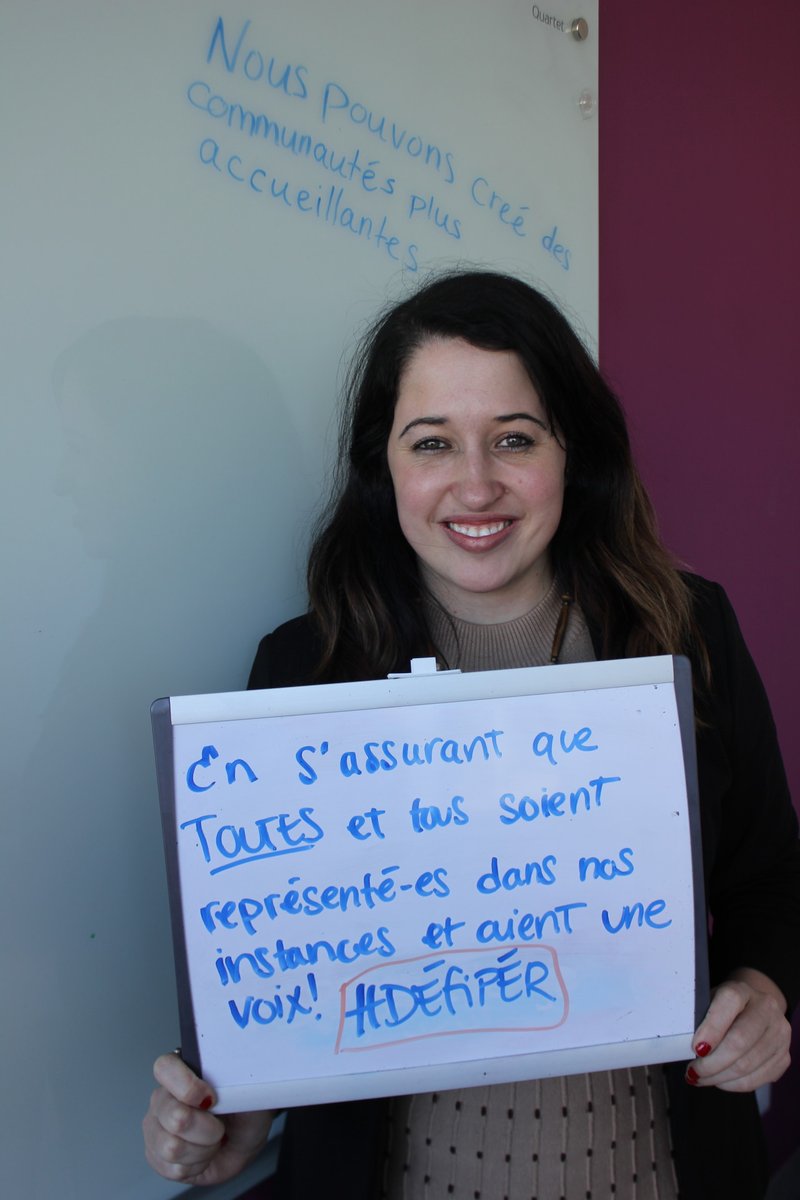 Quartet
Nous pouvons creé des
communautés plus
accueillantes
En s'assurant que
TOUTES et tous soient
représenté-es dans nos
instances et aient une
voix! #DÉFiPÉR